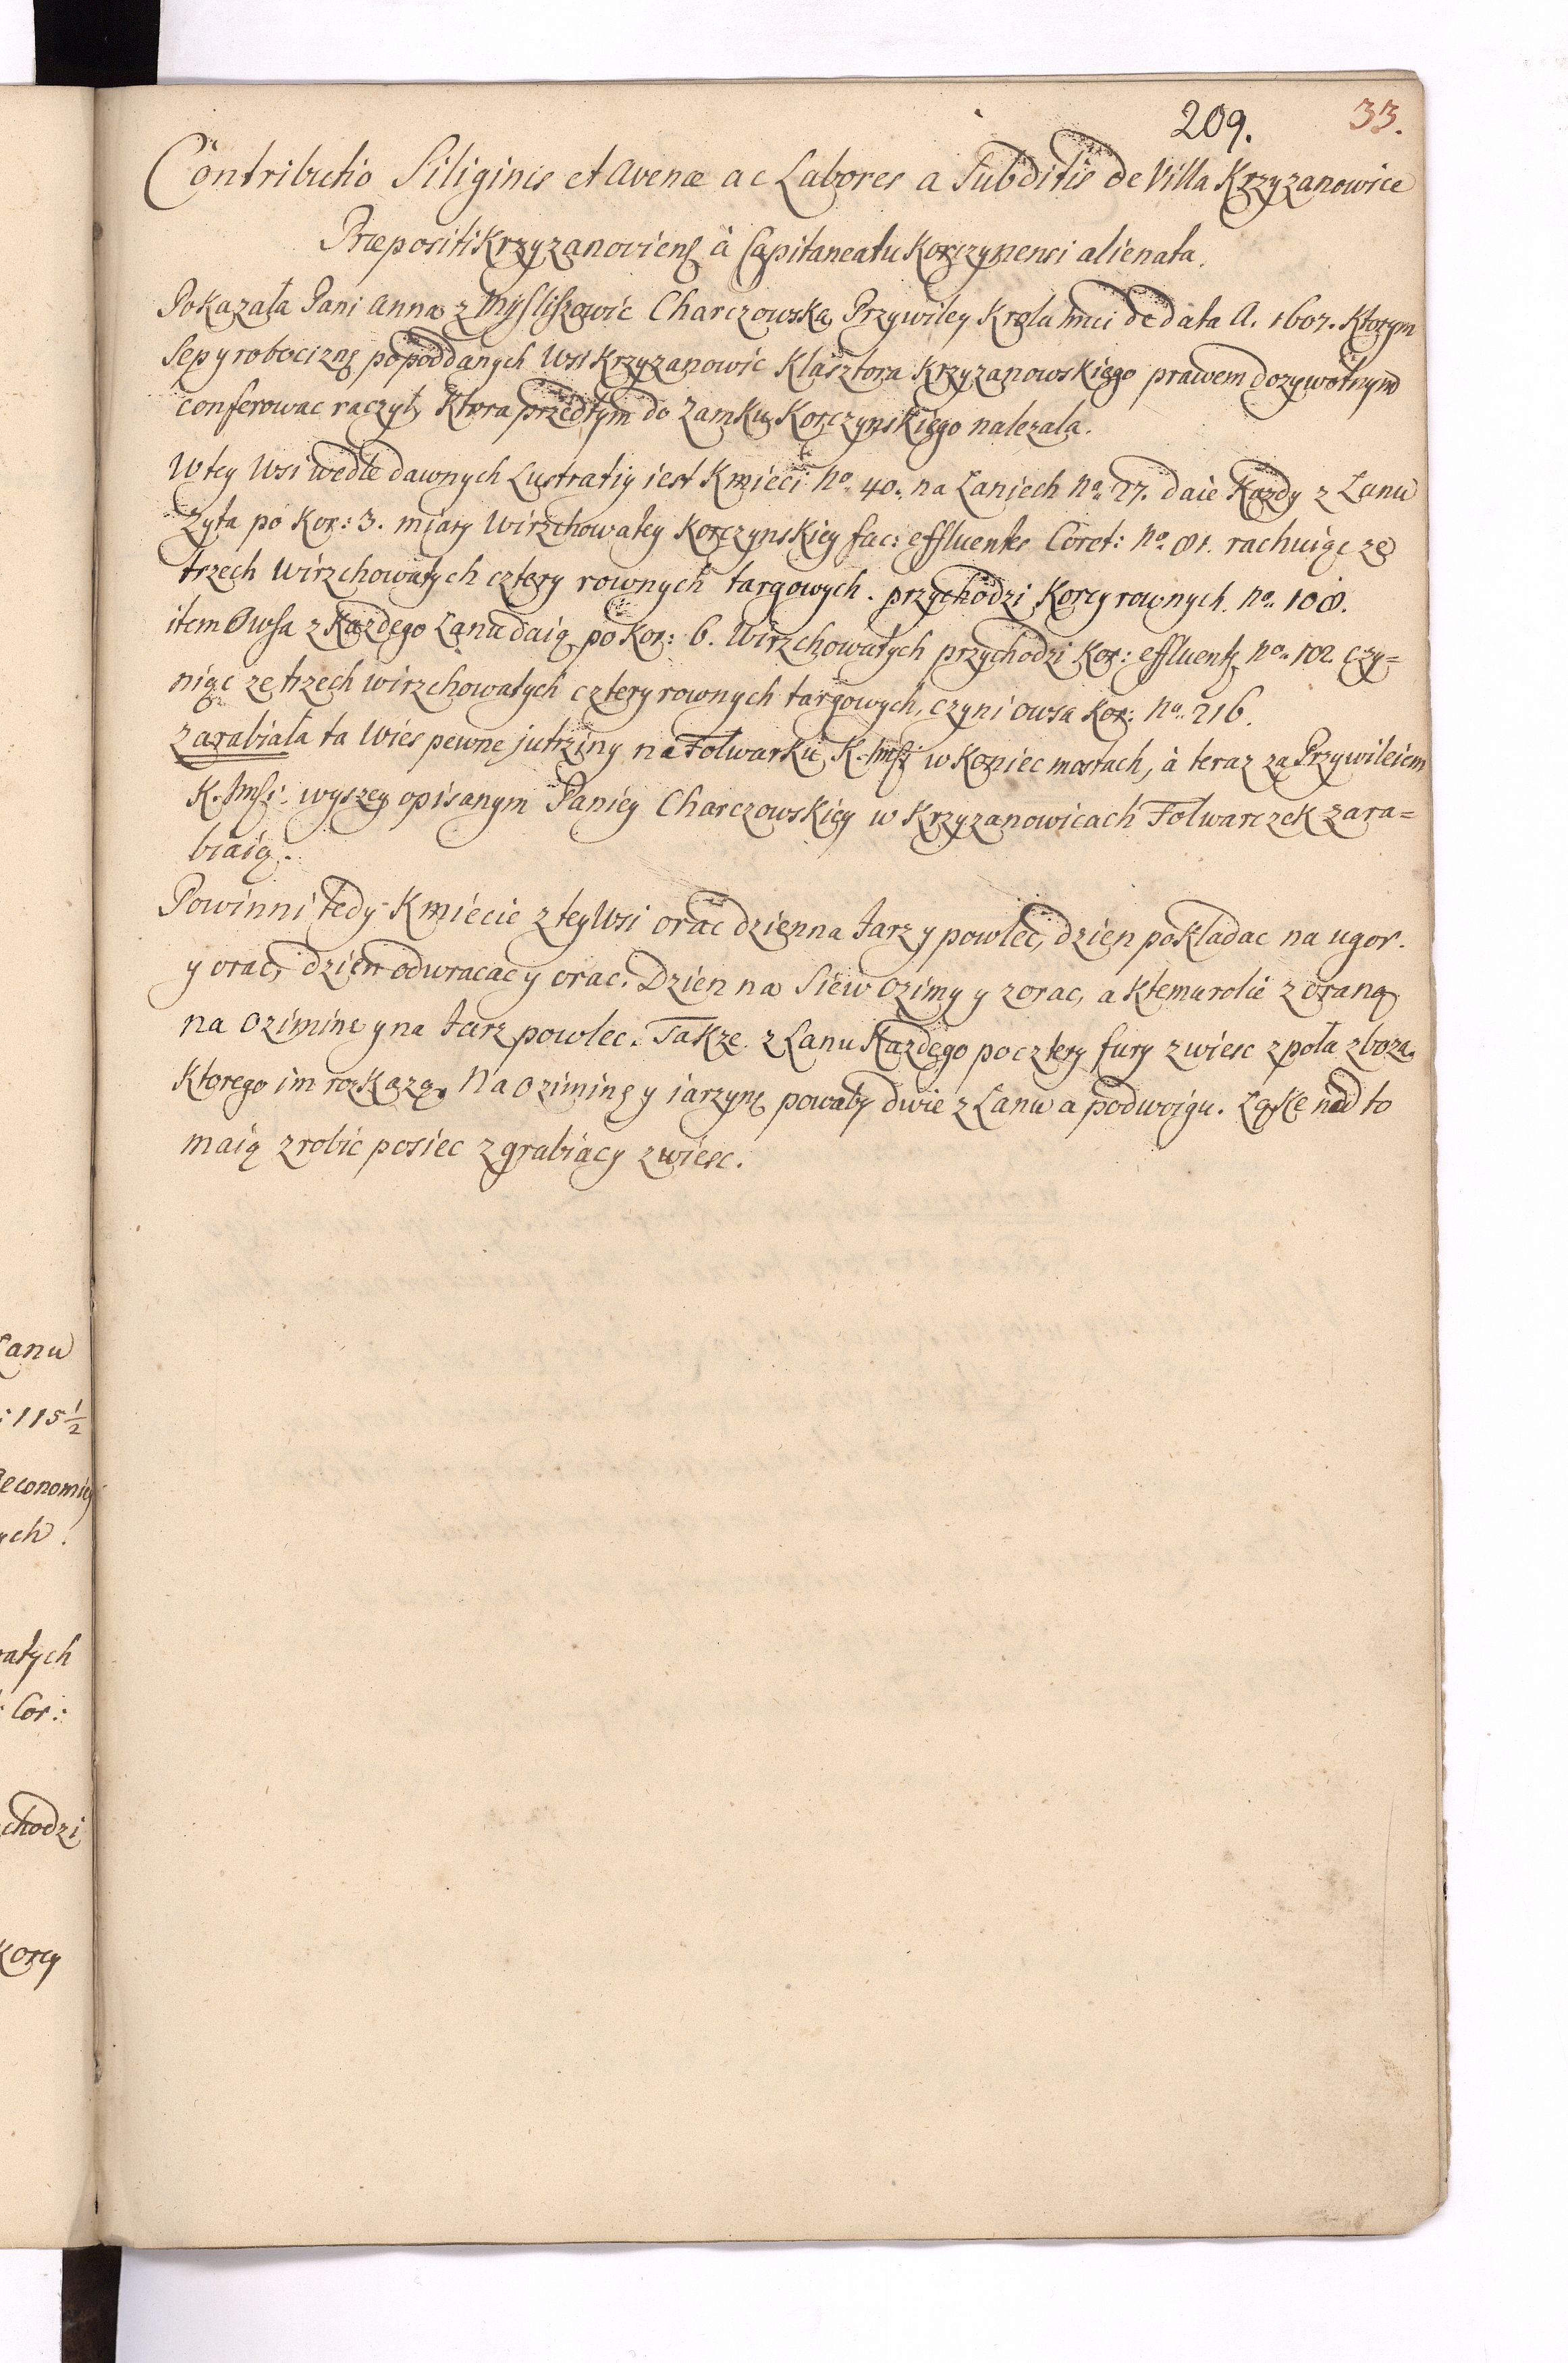 209. 33.
Contributio Siliginis et Avenæ ac Labores a Subditis de Villa Krzyzanowice
Præpositi Krzyzanoviens à Capitaneatu Korczynensi alienata.
Pokazała Pani Anna z Mysliszowic Charczowska Przywiley Krola Jmci de data A. 1607. Ktorym
Sep y robociznę po poddanych Wsi Krzyzanowic Klasztora Krzyzanowskiego prawem dozywotnym
conferowac raczył, Ktora przedtym do Zamku Korczynskiego nalezala.
W tey Wsi wedle dawnych Lustratiy iest Kmieci No. 40. na Laniech No. 27. daie Kazdy z Lanu
Zyta po Kor: 3. miary Wirzchowatey Korczynskiey fac: effluentes Coret: No. 81. rachuiąc ze
trzech Wirzchowatych cztery rownych targowych. przychodzi Korcy rownych. No. 108.
item Owsa z Kazdego Lanu daią po Kor: 6. Wirzchowatych przychodzi Kor: effluent No. 162 czy=
niąc ze trzech wirzchowatych cztery rownych targowych, czyni owsa Kor: No. 216.
Zarabiała ta Wies pewne jutrziny na Folwarku K. Jmsi w Kopiec mostach, à teraz za Przywileiem
K. Jmsi: wyszey opisanym Paniey Charczowskiey w Krzyzanowicach Folwarczek zara=
biaią.
Powinni tedy Kmiecie z tey Wsi orac dzien na Jarz y powlec, dzien pokladac na ugor.
y orac, dzien odwracac y orac. Dzien na Siew Ozimy y zorac, a Ktemu rolie zoraną
na Oziminę y na Jarz powlec. Takze z Lanu Kazdego po cztery fury zwiesc z pola zboza.
Ktorego im rozkazą. Na Oziminę y iarzynę powaby dwie z Lanu a podwoigu. Ląkę nad to
maią zrobic posiec zgrabiac y zwiesc.
Lanu
: 115 1/2
ych.
atych
: Cor:
chodzi
Korcy